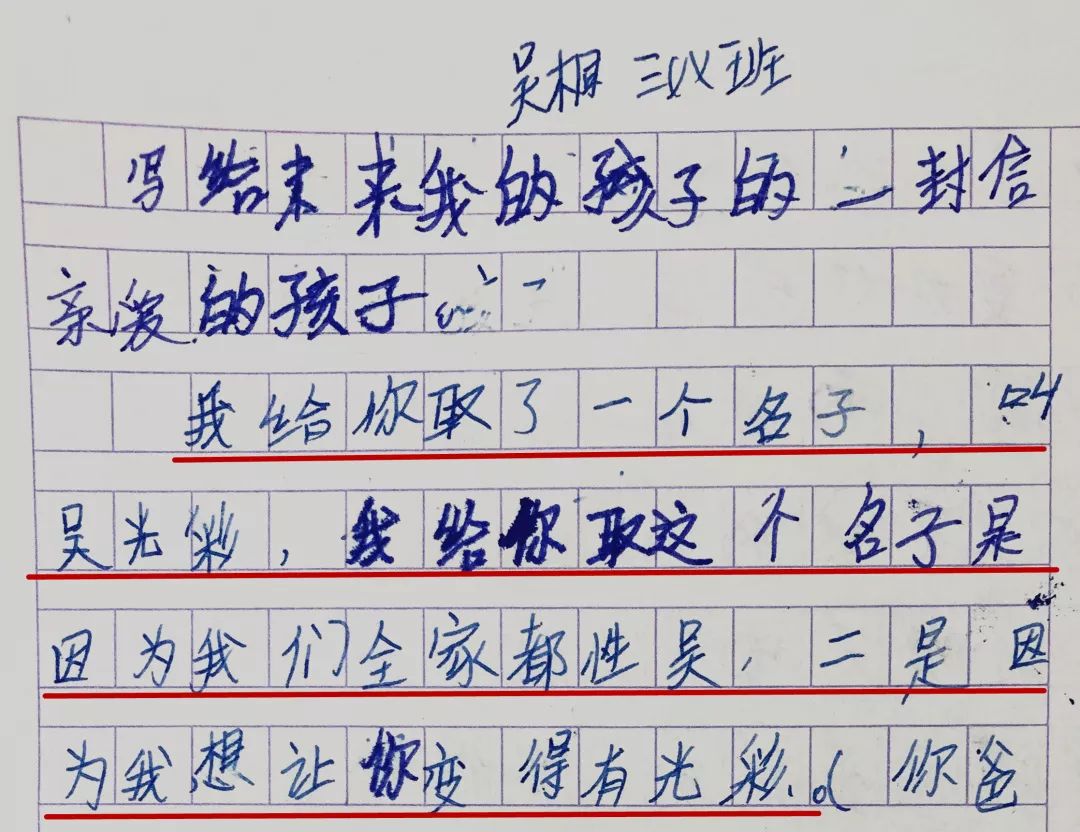 吴桐 三(乂)班
写给未来我的孩子的一封信
亲爱的孩子:
我给你取了一个名子,叫
吴光彩,我给你取这个名子是
因为我们全家都性吴,二是因
为我想让你变得有光彩。(你爸